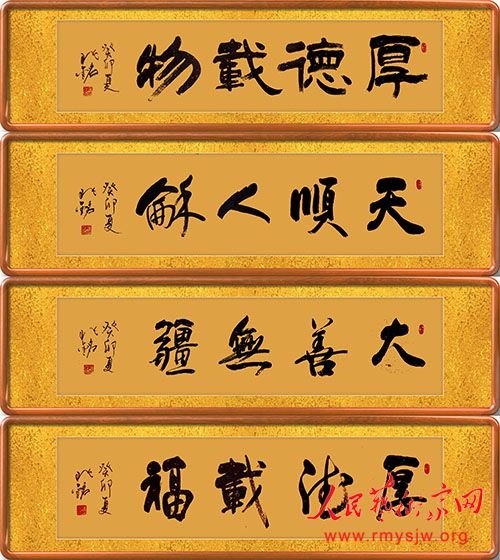 厚德載物
癸卯夏
天順人龢
癸卯夏
大善無疆
癸卯夏
厚德載福
癸卯夏
人民艺术家网
www.rmysjw.org